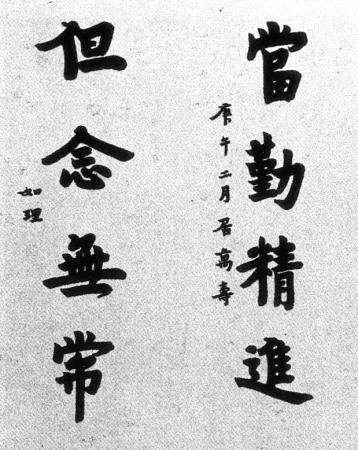 當勤精進
庚午二月居萬壽
但念無常
如理